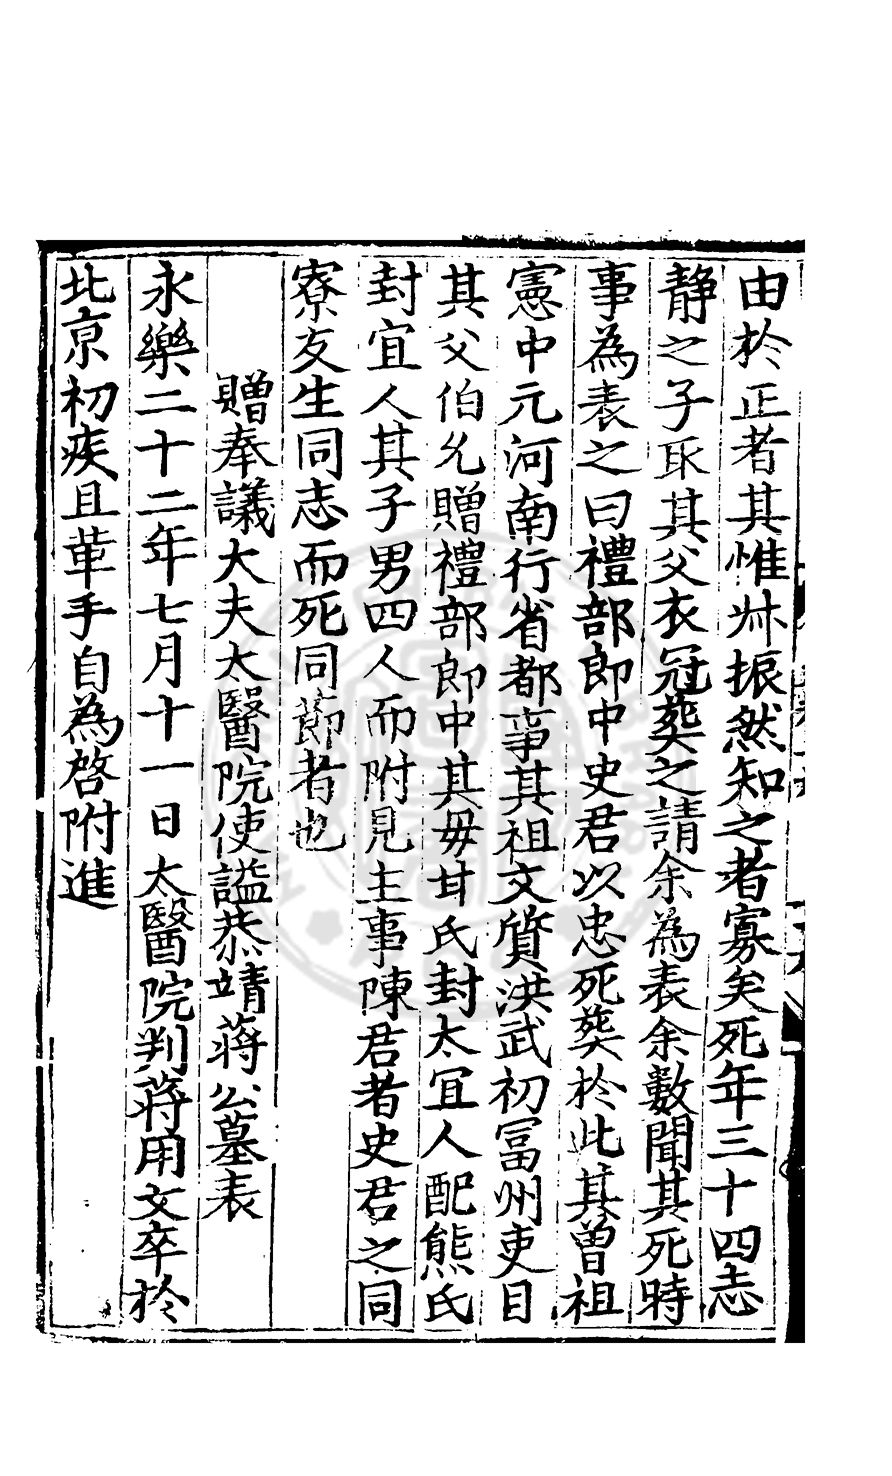 由於正者其惟叔振然知之者寡矣死年三十四志
静之子取其父衣冠葬之請余為表余數聞其死時
事為表之曰禮部郎中史君以忠死葬於此其曾祖
憲中元河南行省都事其祖文質洪武初冨州吏目
其父伯允贈禮部郎中其毋甘氏封太冝人配熊氏
封宜人其子男四人而附見主事陳君者史君之同
寮友生同志而死同莭者也
贈奉議大夫太醫院使謚恭靖蔣公墓表
永樂二十二年七月十一日太醫院判蔣用文卒於
北京初疾且革手自為啓附進